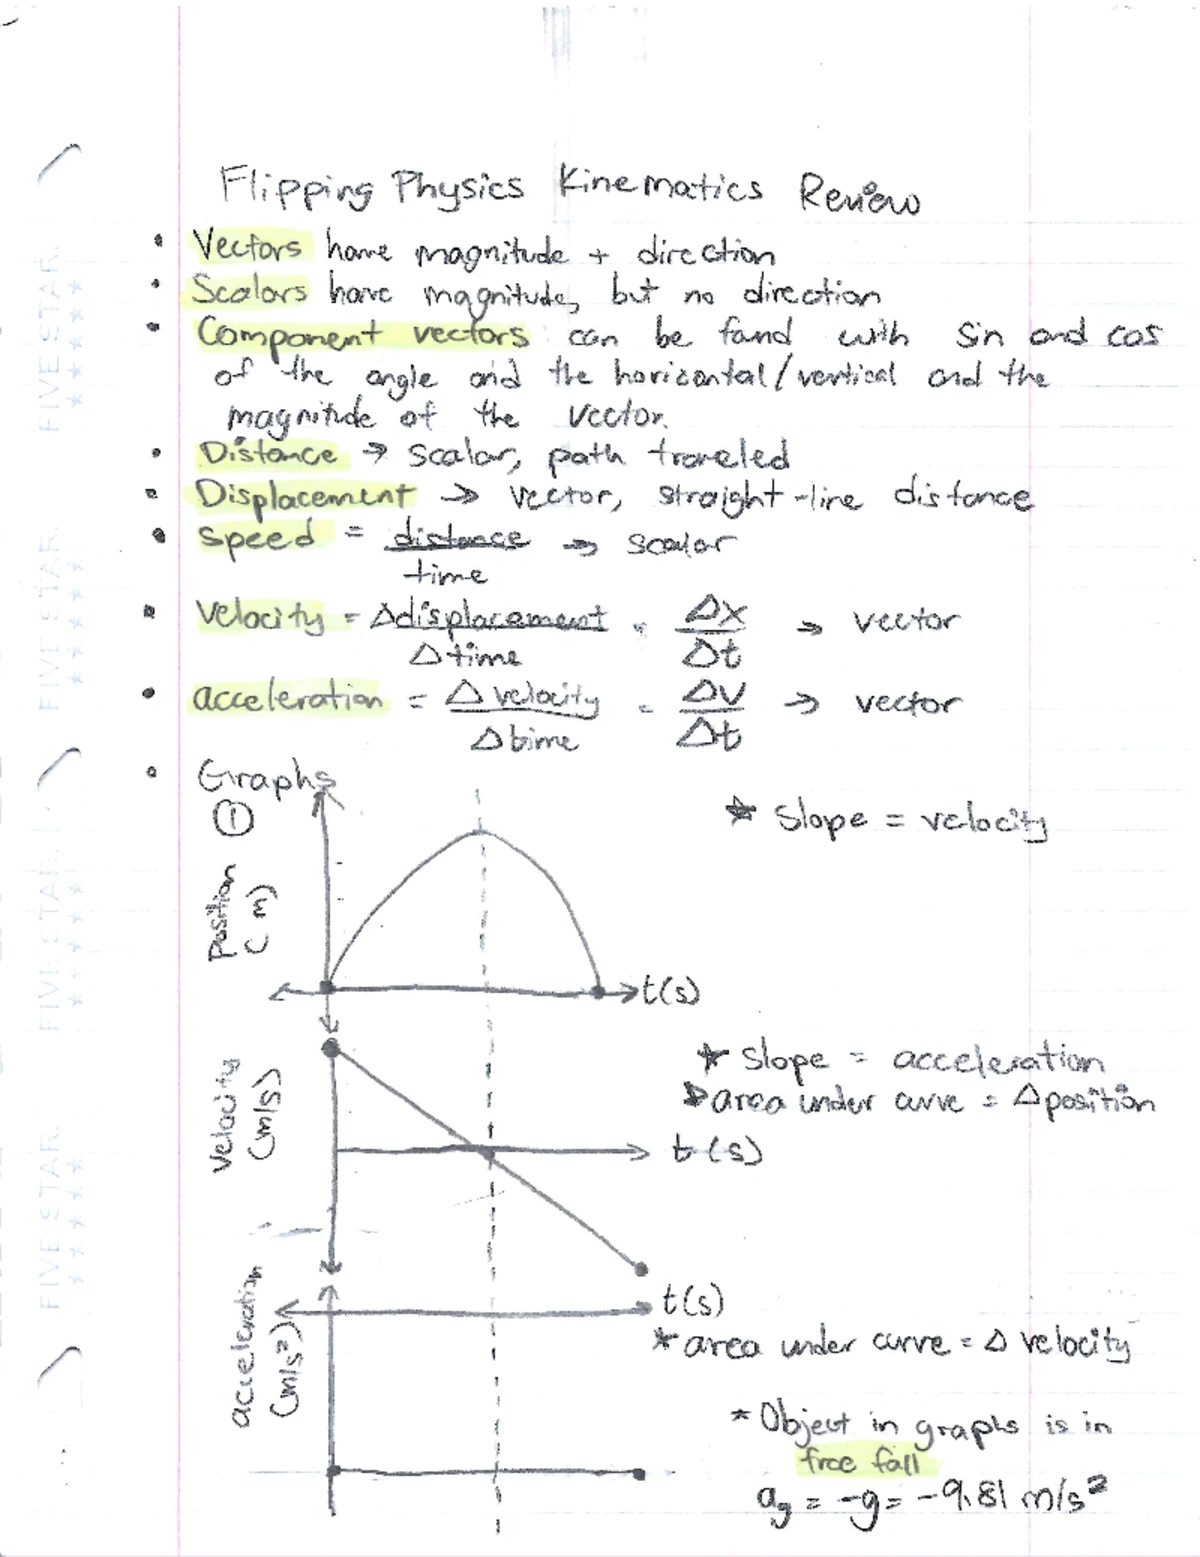 Flipping Physics Kinematics Review
• Vectors have magnitude + direction
• Scalars have magnitude, but no direction
• Component vectors can be found with sin and cos
of the angle and the horizontal/vertical and the
magnitude of the vector.
• Distance → scalar, path traveled
• Displacement → vector, straight-line distance
• speed = distance/time → scalar
• velocity = Δdisplacement/Δtime = Δx/Δt → vector
• acceleration = Δ velocity/Δtime = Δv/Δt → vector
• Graphs
①
* Slope = velocity
Position
(m)
t(s)
* Slope = acceleration
area under curve = Δposition
Velocity
(m/s)
t(s)
t(s)
acceleration
(m/s²)
* area under curve = Δ velocity
* Object in graphs is in
free fall
a_g = -g = -9.81 m/s²
FIVE STAR
FIVE STAR
FIVE STAR
FIVE STAR